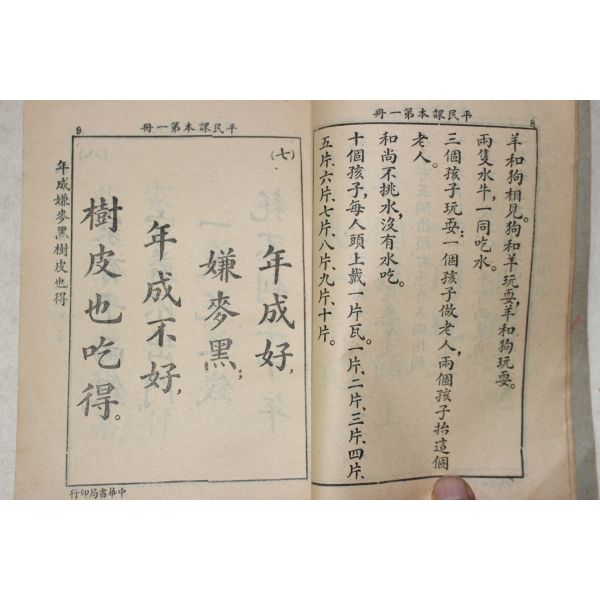 平民課本第一冊
8
羊和狗相見。狗和羊玩耍，羊和狗玩耍。
兩隻水牛，一同吃水。
三個孩子玩耍：一個孩子做老人，兩個孩子抬這個
老人。
和尚不挑水，沒有水吃。
十個孩子，每人頭上戴一片瓦。一片、二片、三片、四片、
五片、六片、七片、八片、九片、十片。
平民課本第一冊
9
（七）
年成好，
嫌麥黑；
年成不好，
樹皮也吃得。
年成嫌麥黑樹皮也得
中華書局印行